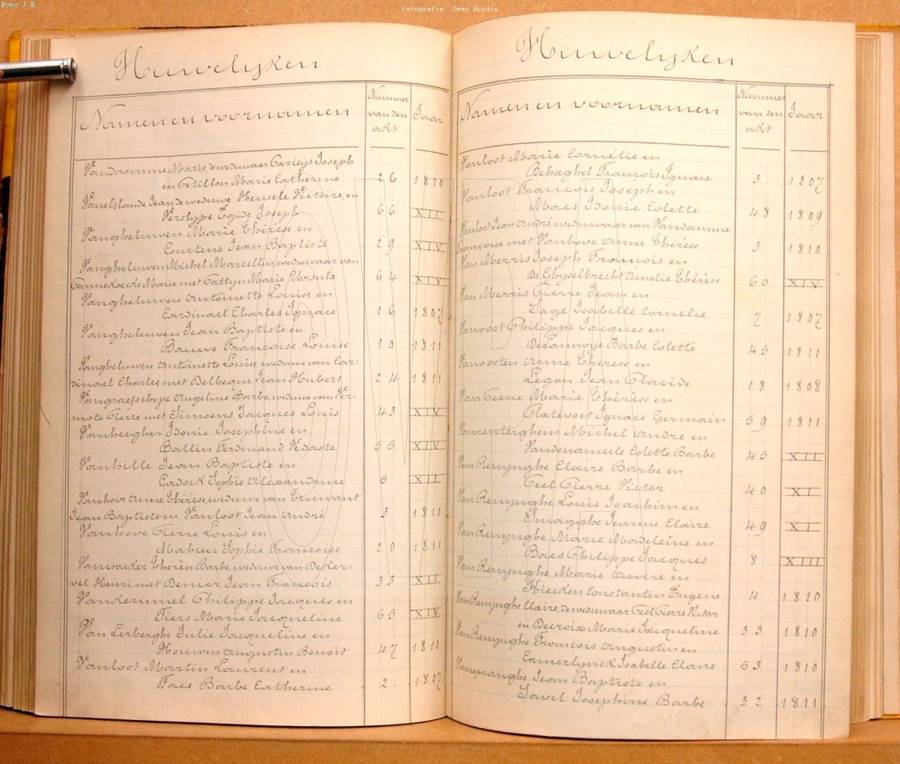 Foto J B
fotografie Jean Bordin
Huwelyken
Namen en voornamen
Nummer van den akt
Jaar
Vandoorme Marie de weduwaar Carisys Joseph
en Petillon Marie Catherine 26 1810
Vanelslande Jean de weduwe Heusele Victoire, en
Verslype Egide Joseph 66 XII
Vangheluwen Marie Thérèse en
Courtens Jean Baptiste 29 XIV
Vangheluwen Michel Marcellin, weduwaar van
Marie met Cattyn Marie Ursula 64 XIV
Vangheluwen Antoinette Louise en
Cardinael Charles Ignace 16 1807
Vangheluwen Jean Baptiste en
Bauwe Françoise Louise 10 1811
Vangheluwen Antoinette Louise weduwe van Car-
dinael Charles met Delbecque Jean Hubert 24 1811
Vangraefschepe Angeline Barbe, weduwe van Ver-
mote Pierre met Simoens Jacques Louis 43 XIV
Vanheeghen Idonie Josephine en
Ballin Ferdinand Vedaste 55 XIV
Vanhille Jean Baptiste en
Cadock Sophie Alexandrine 5 XII
Vanhove Anne Thérèse, weduwe van
Jean Baptiste en Vanloot Jean André 3 1810
Vanhove Pierre Louis en
Mahieu Sophie Françoise 20 1811
Thérèse Barbe, weduwe van Deker-
vel Henri met Denier Jean François 33 XII
Vankemmel Philippe Jacques en
Tiers Marie Jacqueline 65 XIV
Van Lerberghe Julie Jacqueline en
Houwen Augustin Benoit 47 1810
Vanloot Martin Laurent en
Faes Barbe Catherine 2 1807
Huwelyken
Namen en voornamen
Nummer van den akt
Jaar
Vanloot Marie Cornelie en
Behaghel François Ignace 3 1807
Vanloot François Joseph en
Maes Idonie Colette 48 1809
Vanloot Jean André weduwaar van Vandamme
Françoise met Vanhove Anne Thérèse 3 1810
Van Merris Joseph François en
De Ghyselbrecht Amelie Thérèse 60 XIV
Van Merris Pierre Jean en
Sage Isabelle Cornelie 7 1807
Vanoost Philippe Jacques en
Delannoye Barbe Colette 45 1811
Vanoosten Anne Thérèse en
Legon Jean Placide 18 1808
Van Peene Marie Thérèse en
Platevoet Ignace Germain 59 1811
Vanrenterghem Michel André en
Vandenameele Colette Barbe 45 XII
Van Renynghe Claire Barbe en
Ceel Pierre Victor 40 XI
Van Renynghe Louis Joachim en
Smagghe Jeanne Claire 49 XI
Van Renynghe Marie Madeleine en
Baes Philippe Jacques 8 XIII
Van Renynghe Marie Anne en
Hiecken Constantin Eugène 4 1810
Van Renynghe Claire, de weduwaar Ceel Pierre Victor
en Decroix Marie Jacqueline 33 1810
Van Renynghe François Augustin en
Camerlynck Isabelle Claire 53 1810
Jean Baptiste en
Javel Josephine Barbe 32 1811